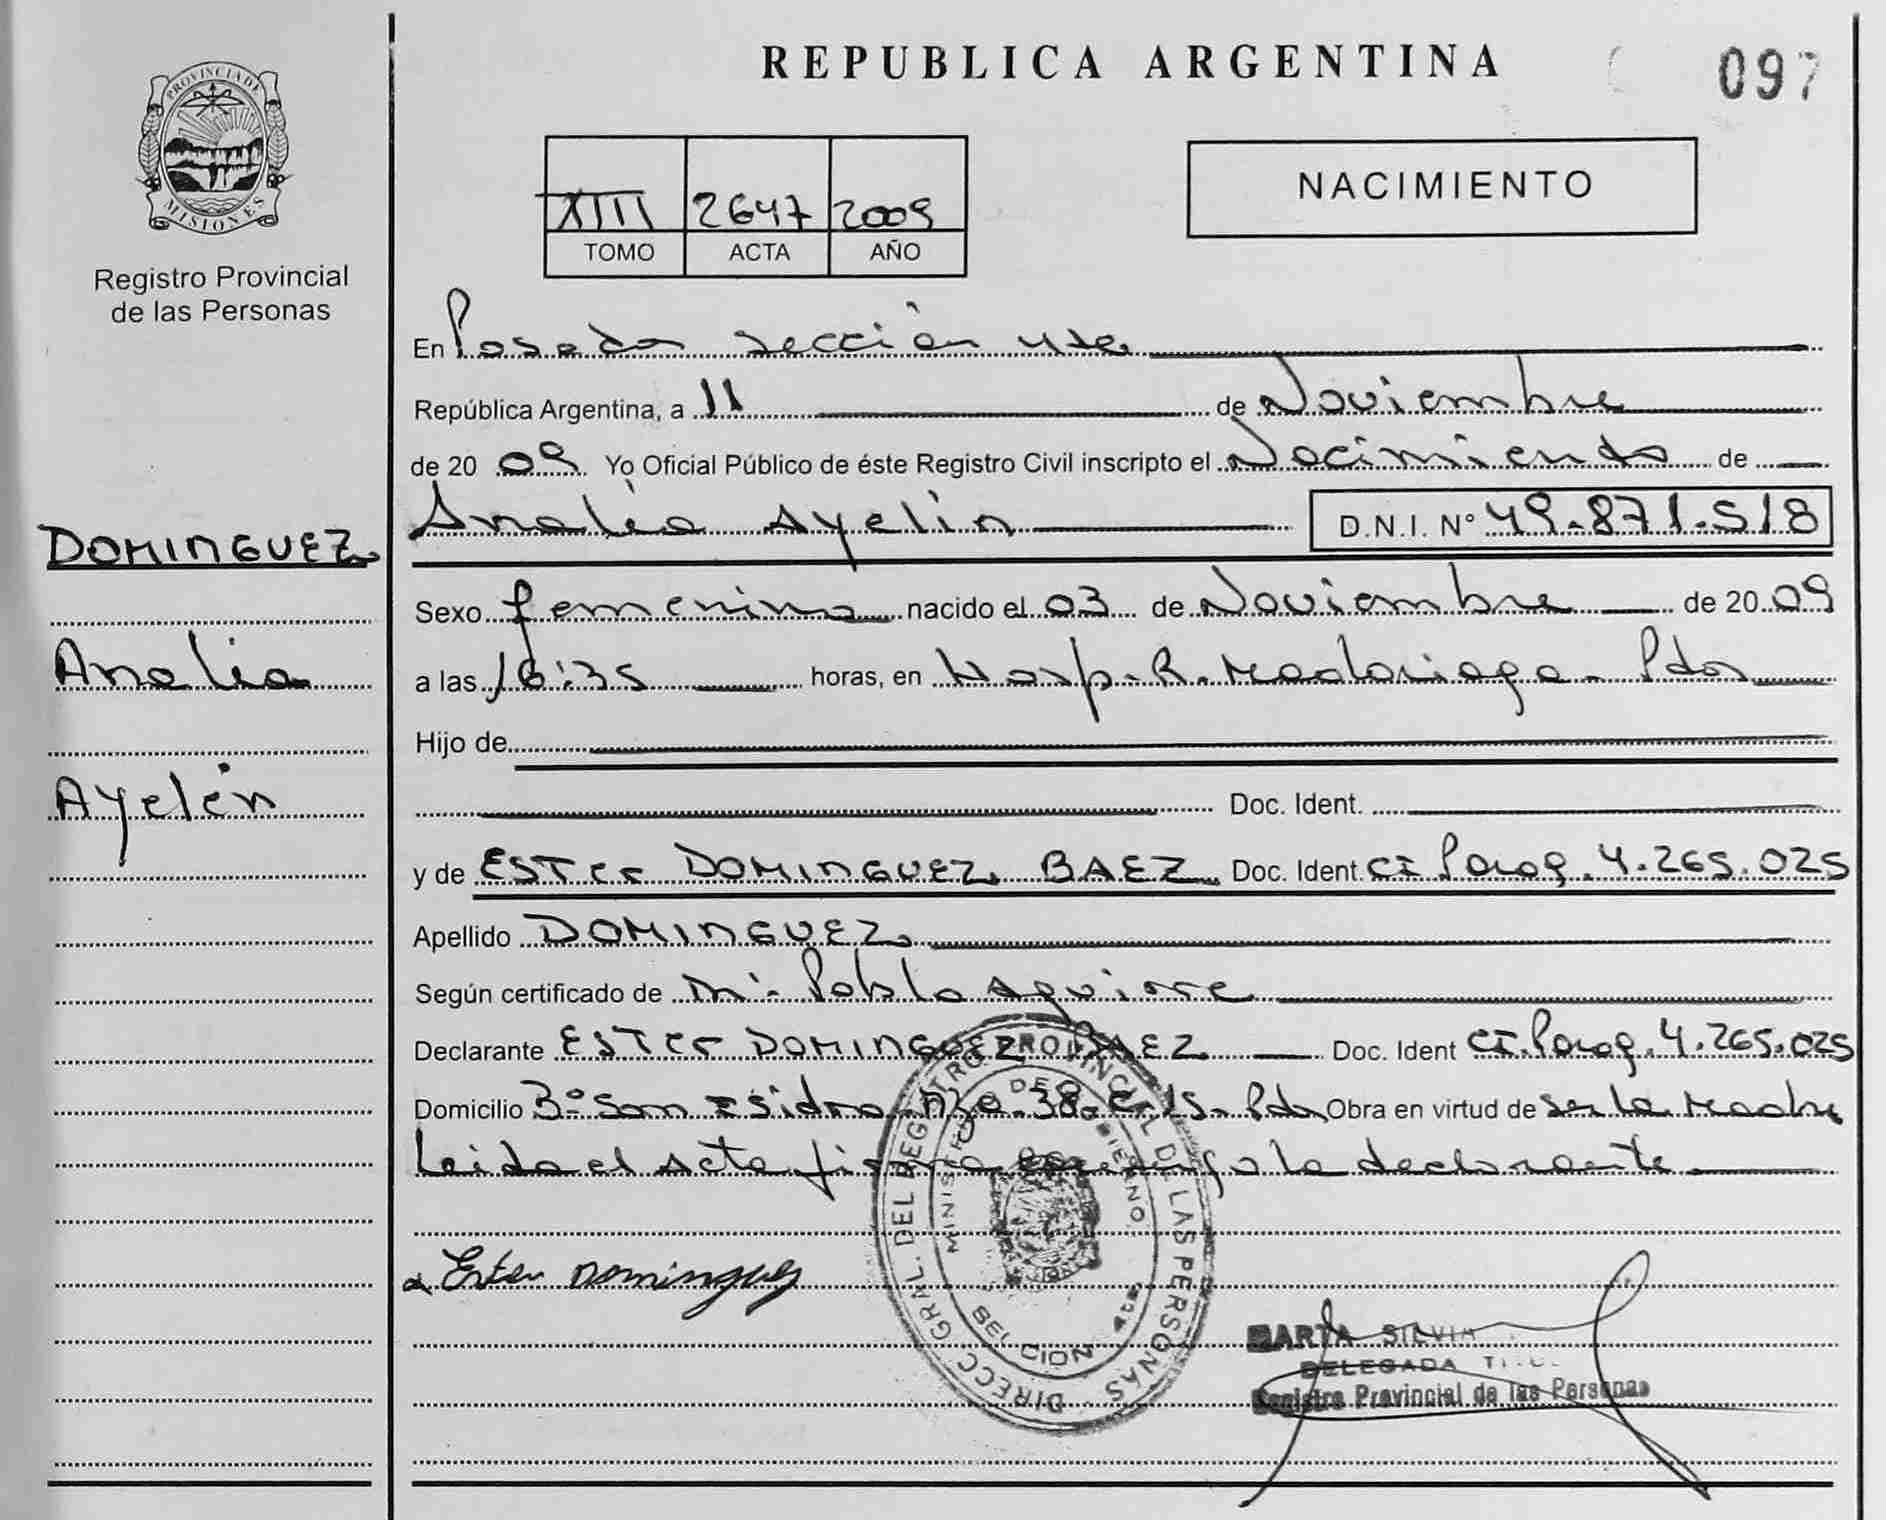 REPUBLICA ARGENTINA
097
PROVINCIA DE MISIONES
Registro Provincial
de las Personas
XIII 2647 2009
TOMO ACTA AÑO
NACIMIENTO
En Posadas sección 4ta
República Argentina, a 11 de Noviembre
de 20 09 Yo Oficial Público de éste Registro Civil inscripto el Nacimiento de
Analía Ayelén D.N.I. N° 49.871.518
DOMINGUEZ
Analia
Ayelén
Sexo femenino nacido el 03 de Noviembre de 20 09
a las 16:35 horas, en Hosp. R. Madariaga - Pdas
Hijo de
Doc. Ident.
y de ESTER DOMINGUEZ BAEZ Doc. Ident. CI Parag. 4.265.025
Apellido DOMINGUEZ
Según certificado de Pablo Aguirre
Declarante ESTER DOMINGUEZ BAEZ Doc. Ident CI. Parag. 4.265.025
Domicilio Bº San Isidro 38 Pdas Obra en virtud de ser la madre
Leida el acta firma conmigo la declarante
Ester Dominguez
DIRECC. GRAL. DEL REGISTRO PROVINCIAL DE LAS PERSONAS
MINISTERIO DE GOBIERNO
MARTA SILVIA
DELEGADA
Registro Provincial de las Personas